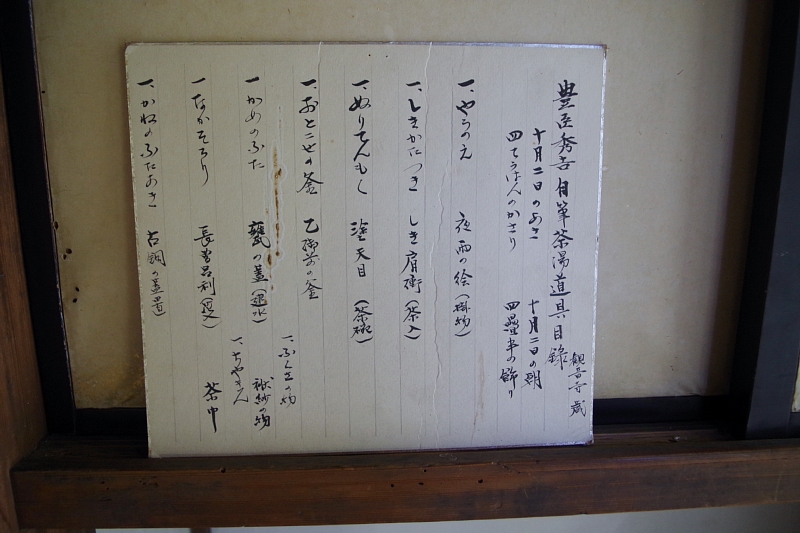 豊臣秀吉自筆茶湯道具目録
観音寺蔵
十月二日のあさ 十月二日の朝
四てうはんのかさり 四畳半の飾り
一、やうのえ 夜雨の絵(掛物)
一、しきかたつき しき肩衝(茶入)
一、ぬりてんもく 塗天目(茶碗)
一、おとこせの釜 乙御前の釜
一、ふくさの物 袱紗の物
一かめのふた 甕の蓋(建水)
一、ちやきん 茶巾
一なかそろり 長曽呂利(花入)
一、かねのふたおき 古銅の蓋置